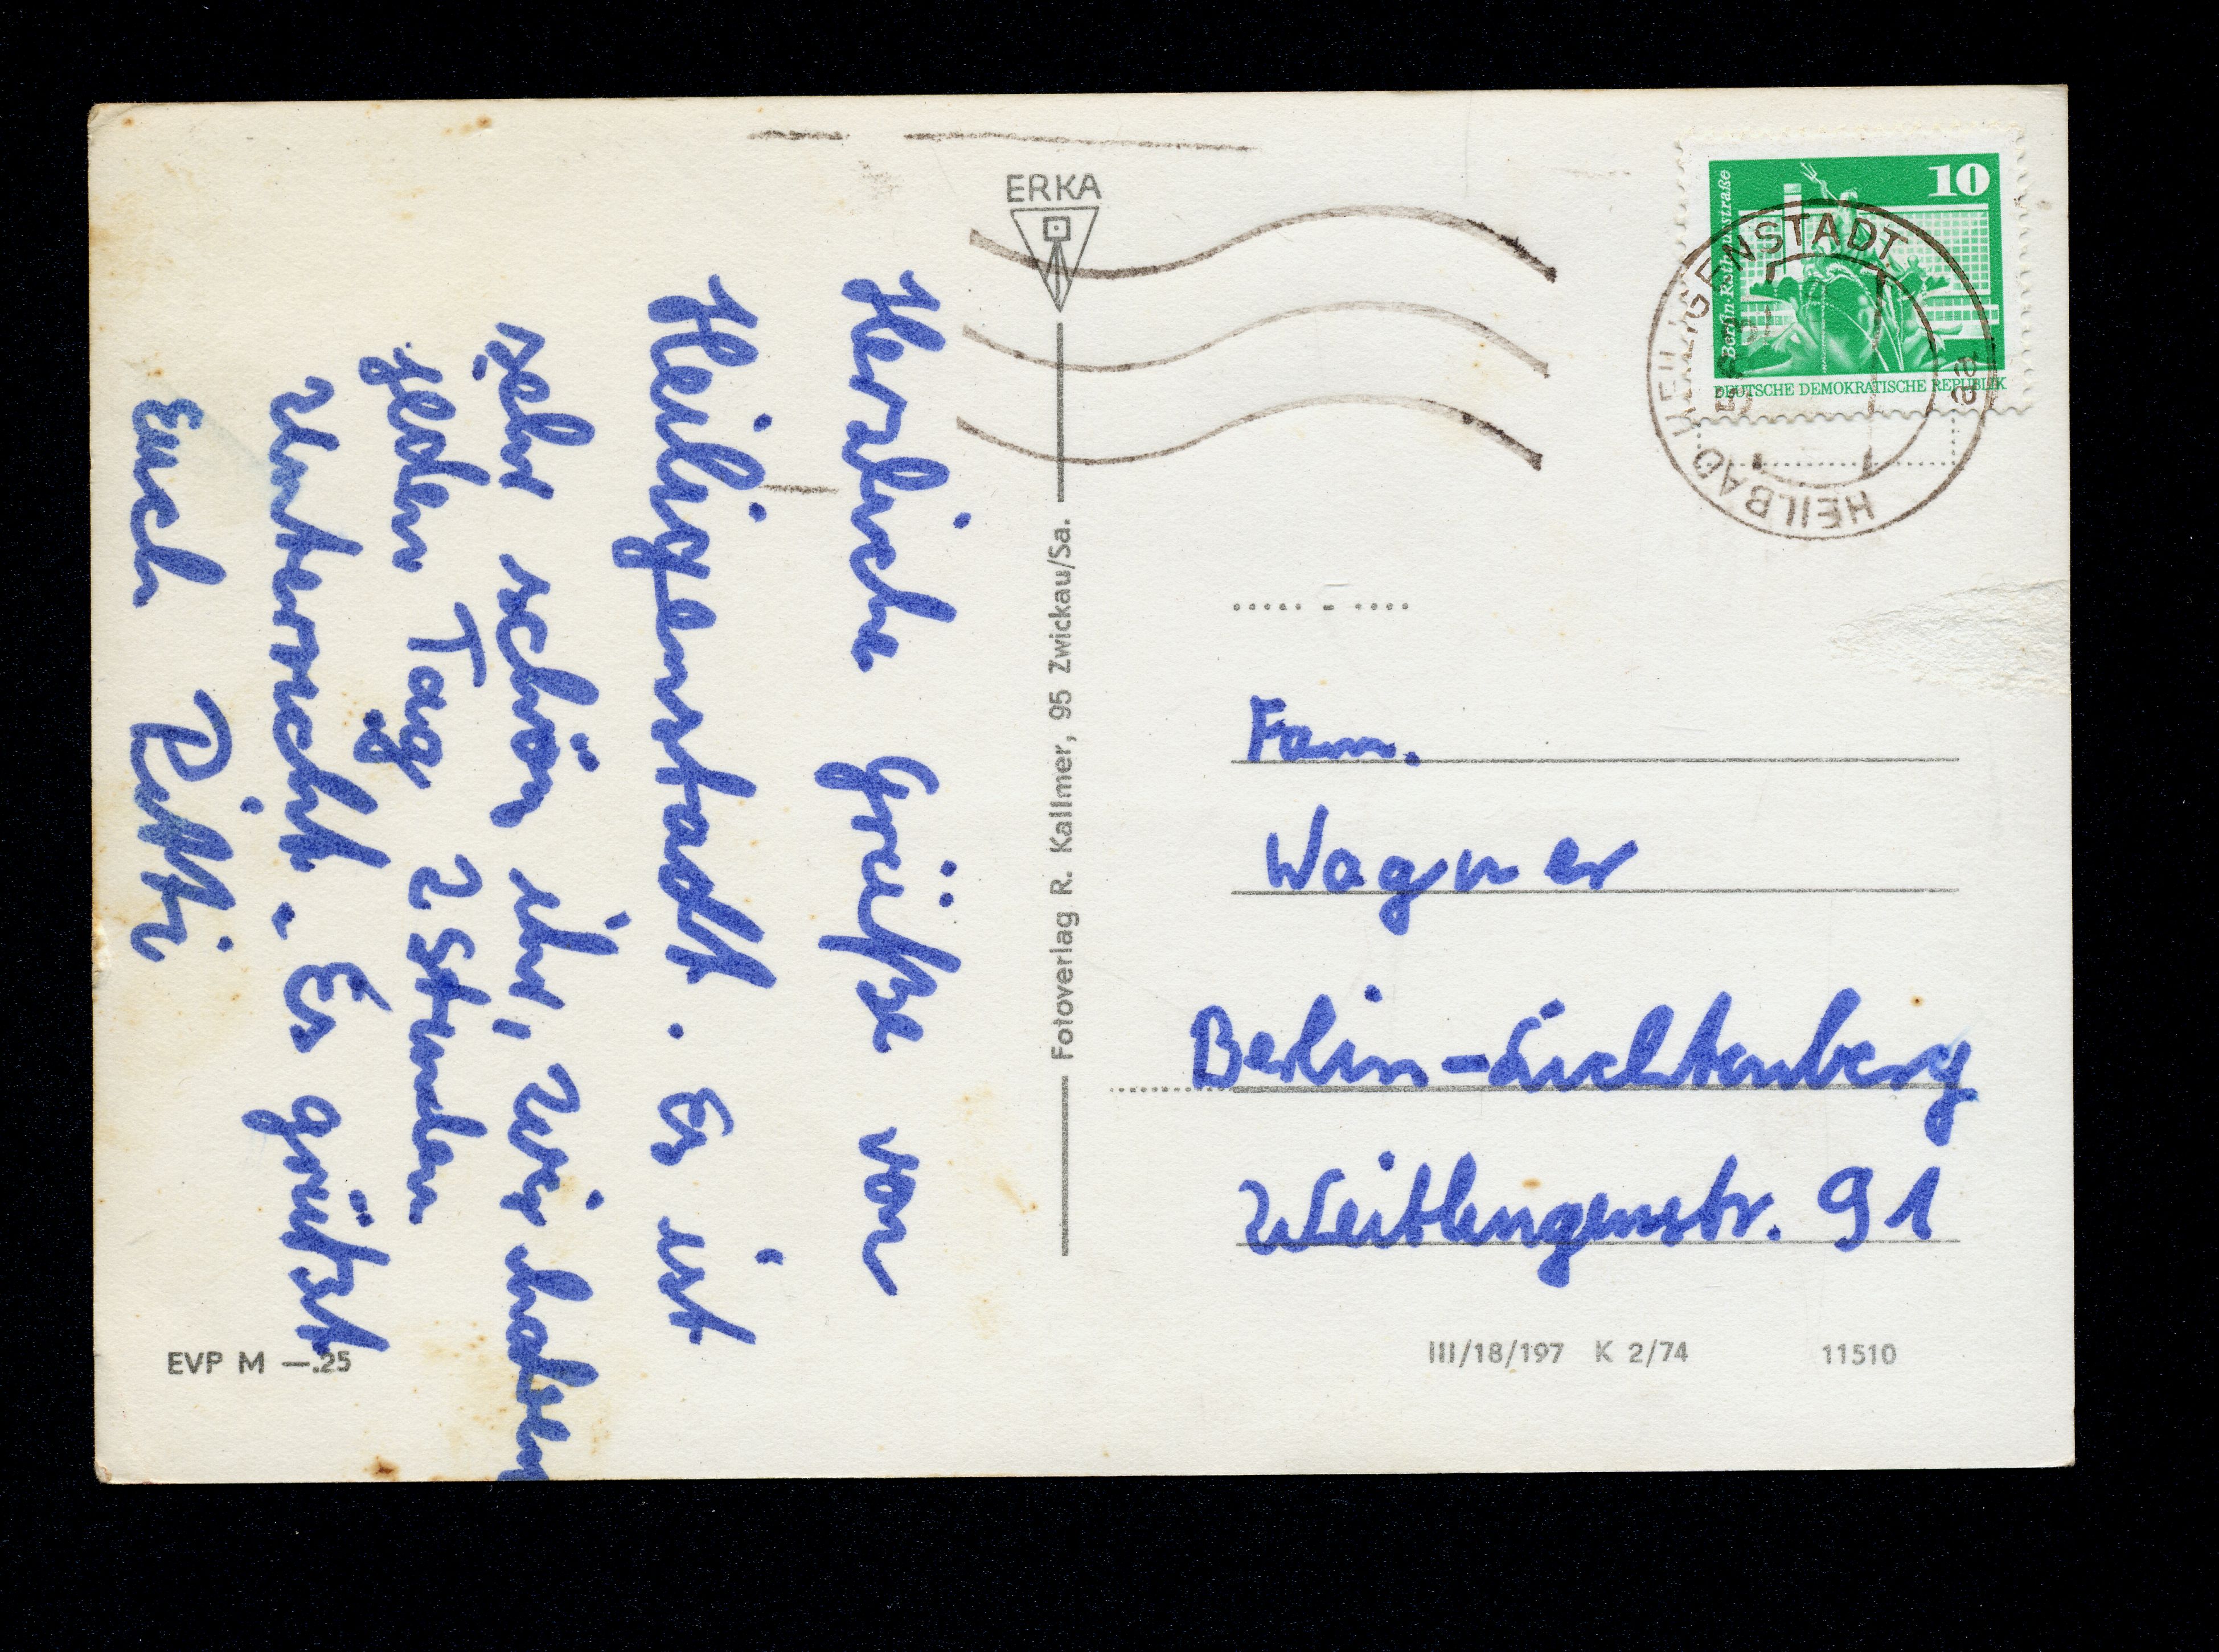 Herzliche Grüße von
Heiligenstadt. Es ist
sehr schön ihr, Wir haben
jeden Tag 2 Stunden
Unterricht. Es grüßt
Euch Pitti
ERKA
Fotoverlag R. Kallmer, 95 Zwickau/Sa.
EVP M —.25
10
Berlin-Rathausstraße
DEUTSCHE DEMOKRATISCHE REPUBLIK
HEILBAD HEILIGENSTADT
aa
Fam.
Wagner
Berlin-Lichtenberg
Weitlingenstr. 91
III/18/197 K 2/74 11510